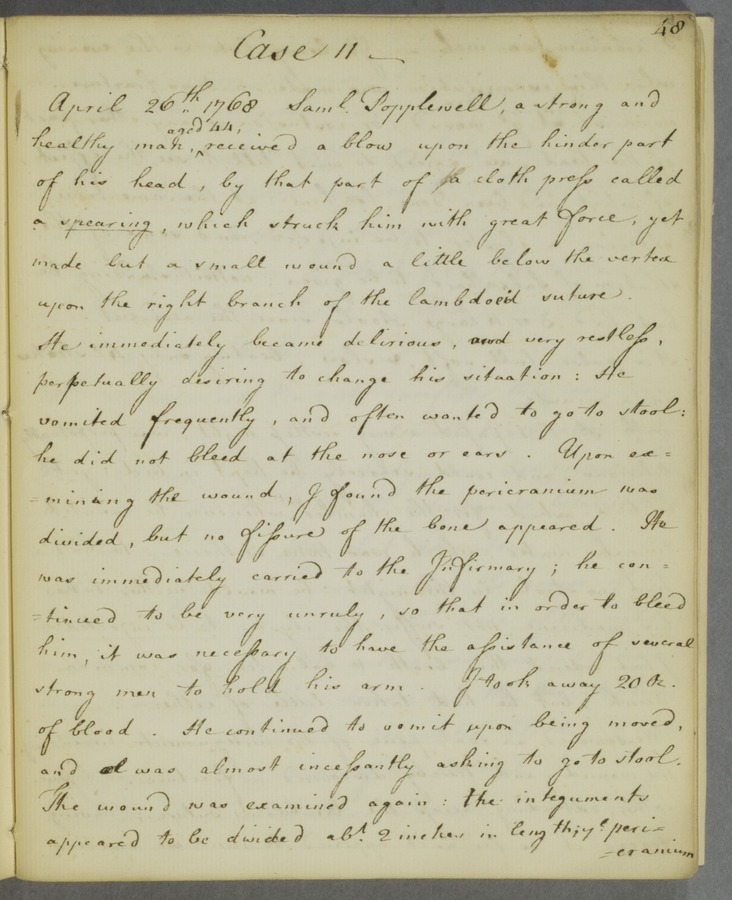 48
Case 11
April 26th 1768 Saml. Popplewell, a strong and
aged 44,
healthy man, received a blow upon the hinder part
of his head, by that part of a cloth press called
a spearing, which struck him with great force, yet
made but a small wound a little below the vertex
upon the right branch of the lambdoid suture.
He immediately became delirious, and very restless,
perpetually desiring to change his situation: He
vomited frequently, and often wanted to go to stool:
he did not bleed at the nose or ears. Upon ex=
=mining the wound, I found the pericranium was
divided, but no fissure of the bone appeared. He
was immediately carried to the Infirmary; he con=
=tinued to be very unruly, so that in order to bleed
him, it was necessary to have the assistance of several
strong men to hold his arm. I took away 20 oz.
of blood. He continued to vomit upon being moved,
and was almost incessantly asking to go to stool.
The wound was examined again: the integuments
appeared to be divided abt. 2 inches in length; ye. peri=
=cranium